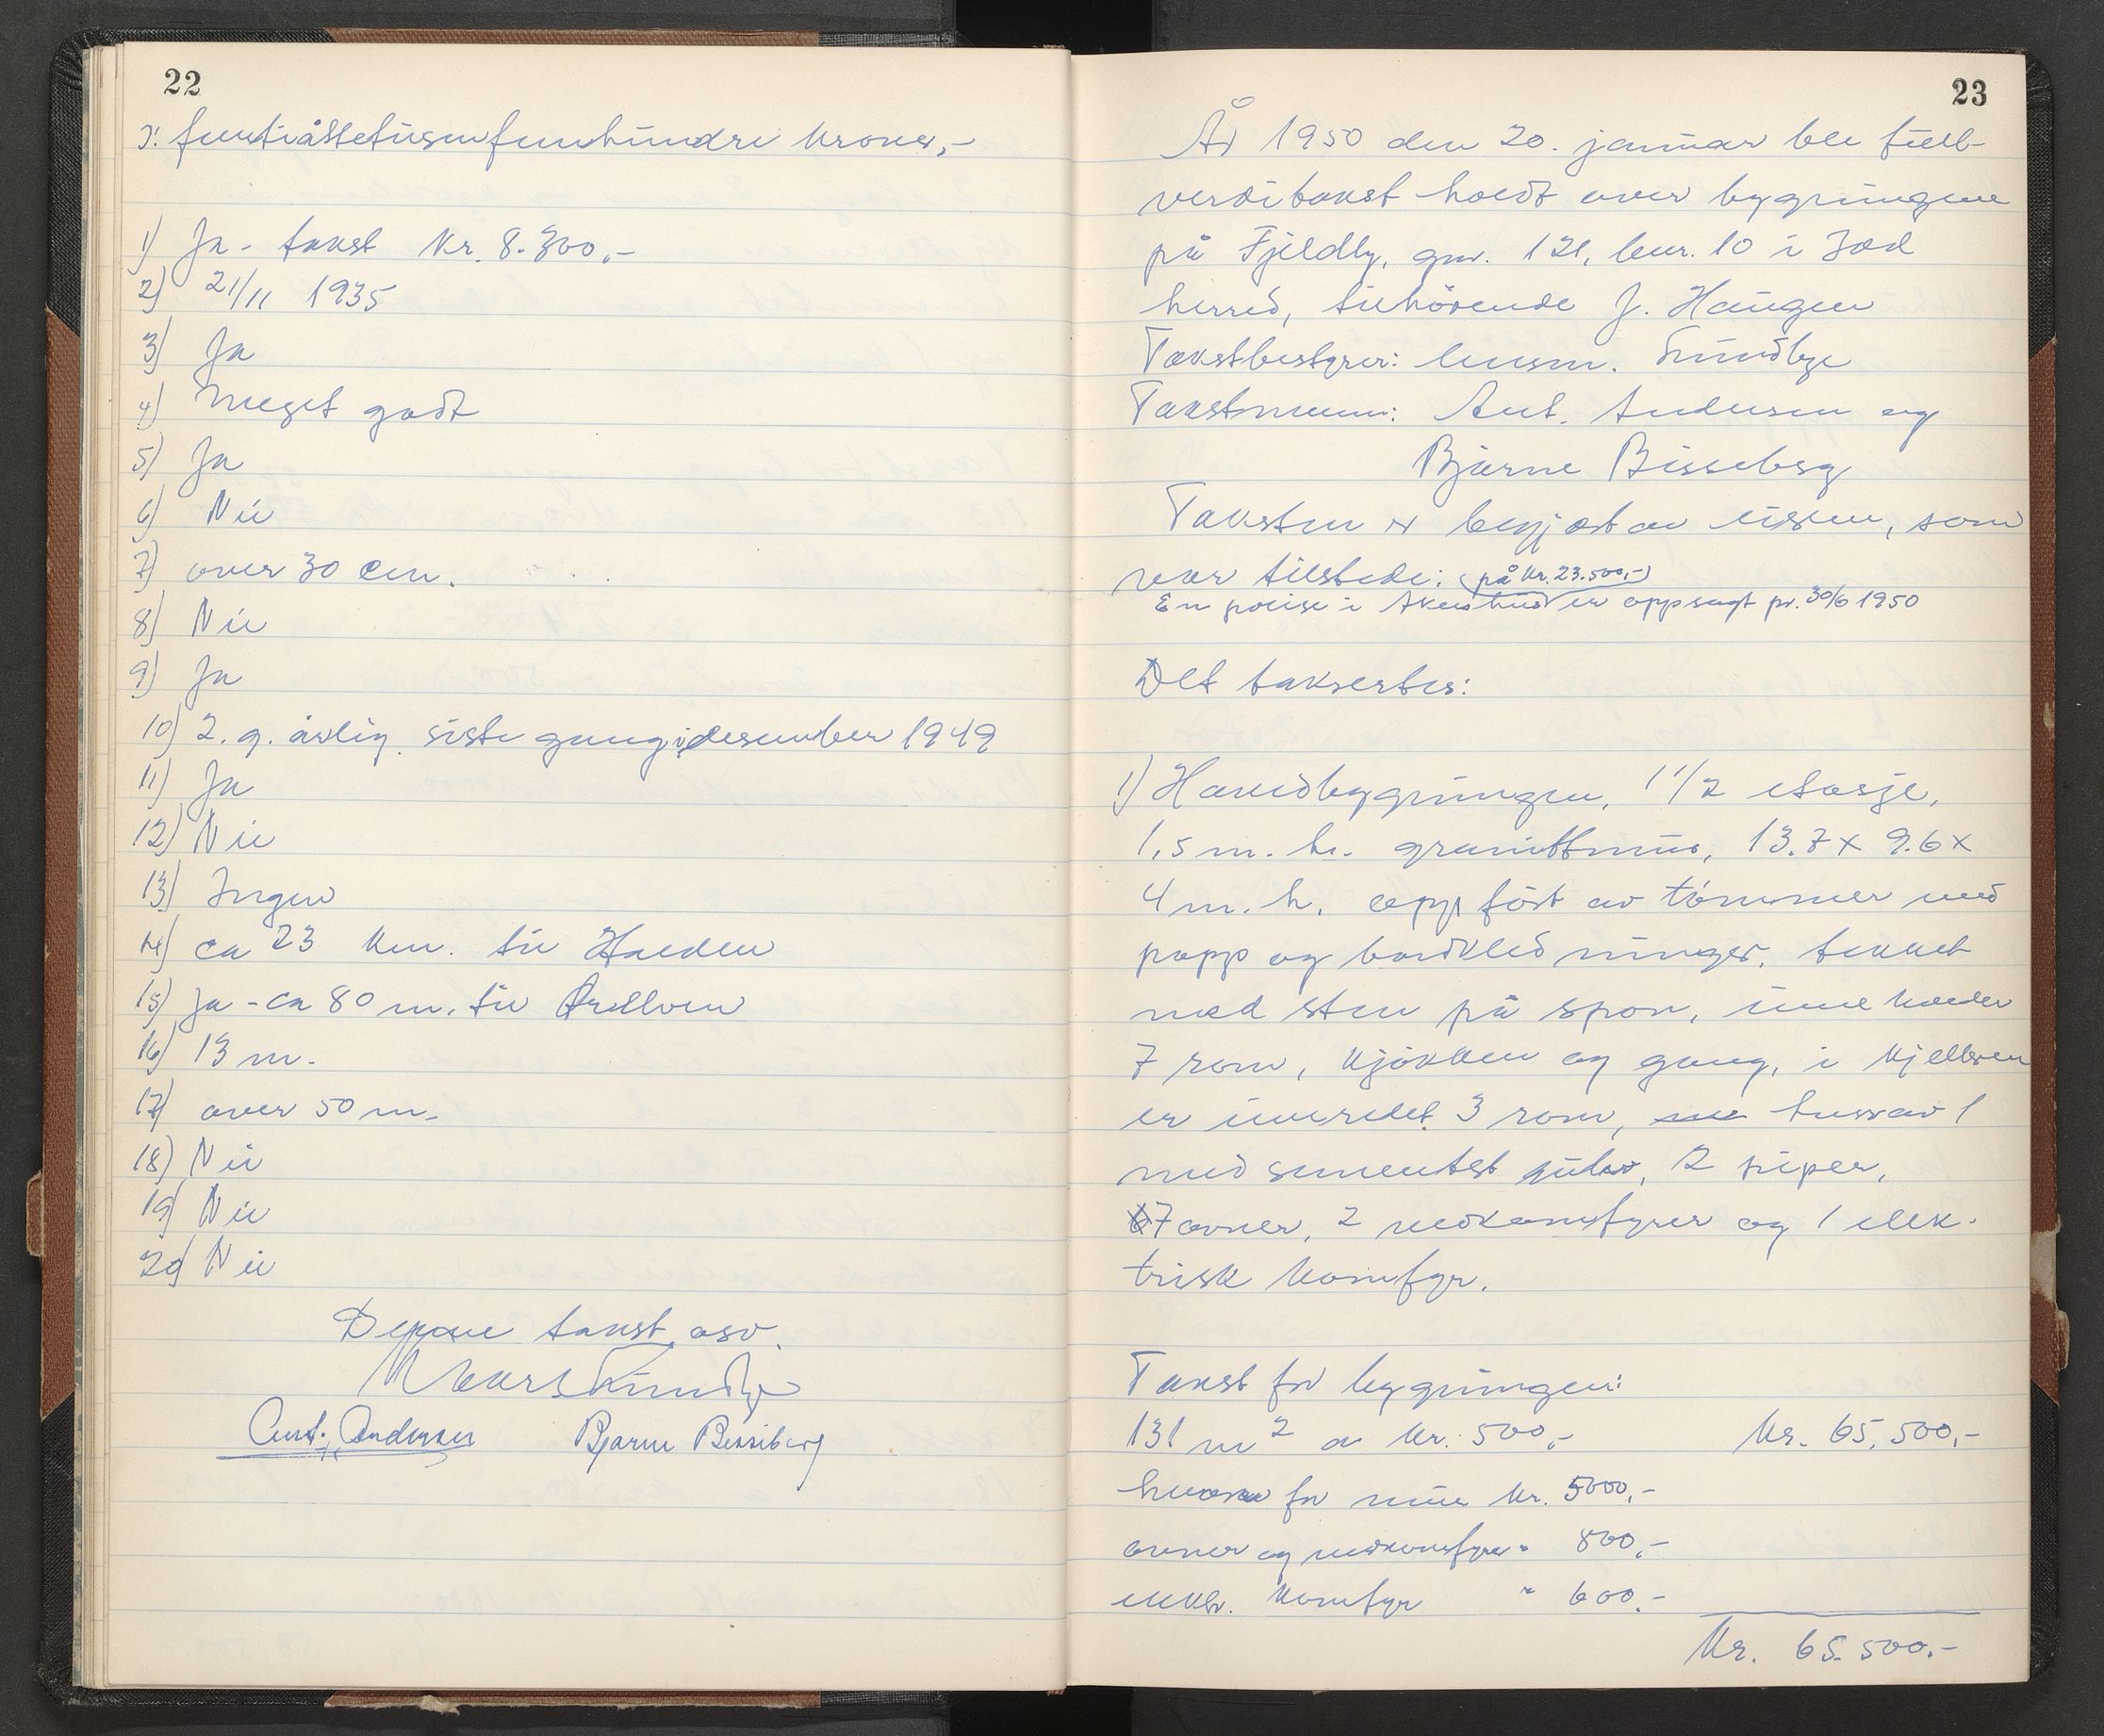 22
ɔ: femtiåttetusenfemhundre kroner,-
1) Ja - takst kr. 8.300,-
2) 21/11 1935
3) Ja
4) Meget godt
5) Ja
6) Nei
7) over 30 cm.
8) Nei
9) Ja
10) 2. g. årlig siste gang i desember 1949
11) Ja
12) Nei
13) Ingen
14) ca 23 km. til Halden
15) Ja - ca 80 m. til
16) 13 m.
17) over 50 m.
18) Nei
19) Nei
20) Nei
Denne takst osv.
Ant. Andersen Bjarne Bisseberg
23
År 1950 den 20. januar ble full-
verditakst holdt over bygningene
på Fjeldly, gnr. 121, bnr. 10 i Idd
herred, tilhörende J. Haugen
Takstbestyrer: lensm. Sundbye
Takstmenn: Ant. Andersen og
Bjarne Bisseberg
Taksten er begjært av eieren, som
var tilstede: (på kr. 23.500,-)
En polise i Akershus er oppsagt pr. 30/6 1950
Det taksertes:
1) Hovedbygningen, 1 1/2 etasje,
1,5 m. h. granittmur, 13.7 x 9.6 x
4 m. h. oppfört av tömmer med
papp og bordkledninger, tekket
med sten på spon, inneholder
7 rom, kjökken og gang, i kjelleren
er innredet 3 rom, hvorav 1
med sementert gulv, 2 piper,
7 ovner, 2 vedkomfyrer og 1 elek-
trisk komfyr.
Takst for bygningen:
131 m2 a kr. 500,- kr. 65.500,-
hvorav for mur kr. 5000,-
ovner og vedkomfyrer " 800,-
elektr. komfyr " 600.-
Kr. 65.500.-